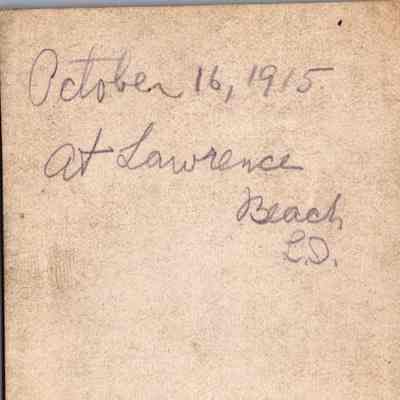 October 16, 1915
At Lawrence
Beach
L.I.